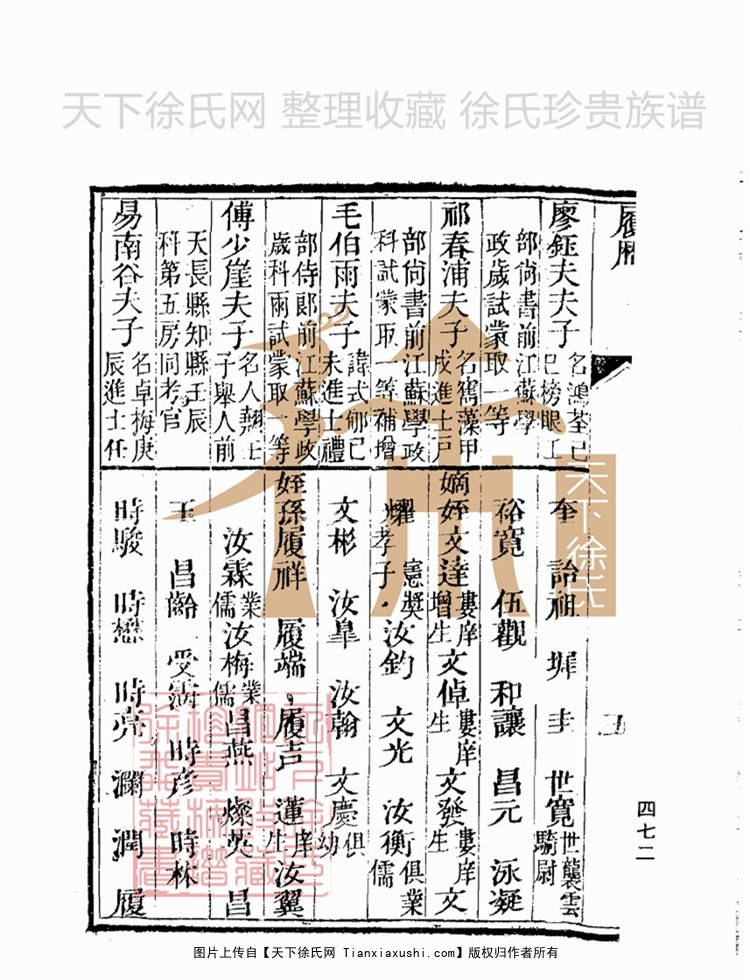 天下徐氏网 整理收藏 徐氏珍贵族谱
履歷
五
四七二
廖鈺夫夫子名鴻荃己巳榜眼工
部尚書前江蘇學政歲試蒙取一等
祁春浦夫子名寯藻甲戌進士戶
部尚書前江蘇學政科試蒙取一等補增
毛伯雨夫子諱式郇己未進士禮
部侍郎前江蘇學政歲科兩試蒙取一等
傅少崖夫子名人 壬子舉人前
天長縣知縣壬辰科第五房同考官
易南谷夫子名卓梅庚辰進士任
奎 詒祖 墀 圭 世寬世襲雲騎尉
裕寬 伍觀 和讓 昌元 泳凝
嫡姪文達婁庠增生文倬婁庠生 文發婁庠生 文
燿孝子 憲奬 汝鈞 文光 汝衡俱業儒
文彬 汝臯 汝翰 文慶俱幼
姪孫履祥 履端 履声 蓮庠生 汝翼
汝霖業儒汝梅業儒昌燕 燦英 昌
玉 昌齡 受濤 時彥 時林
時駿 時懋 時亮 瀾 潤 履
天下徐氏
图片上传自【天下徐氏网 Tianxiaxushi.com】版权归作者所有